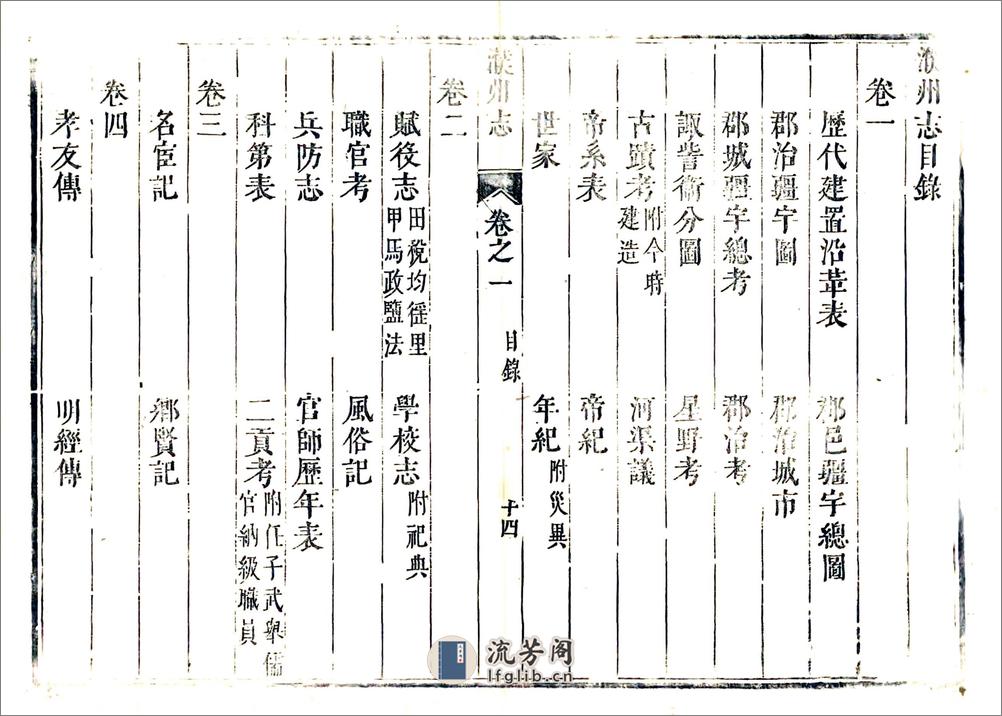 濮州志目錄
卷一
歷代建置沿革表　郡邑疆宇總圖
郡治疆宇圖　郡治城市
郡城疆宇總考　郡治考
諏訾衛分圖　星野考
古蹟考附今時建造　河渠議
帝系表　帝紀
世家　年紀附災異
濮州志　卷之一　目錄　十四
卷二
賦役志田稅均徭里甲馬政鹽法　學校志附祀典
職官考　風俗記
兵防志　官師歷年表
科第表　二貢考附任子武舉儒官納級職員
卷三
名宦記　鄉賢記
卷四
孝友傳　明經傳
流芳阁
lfglib.cn